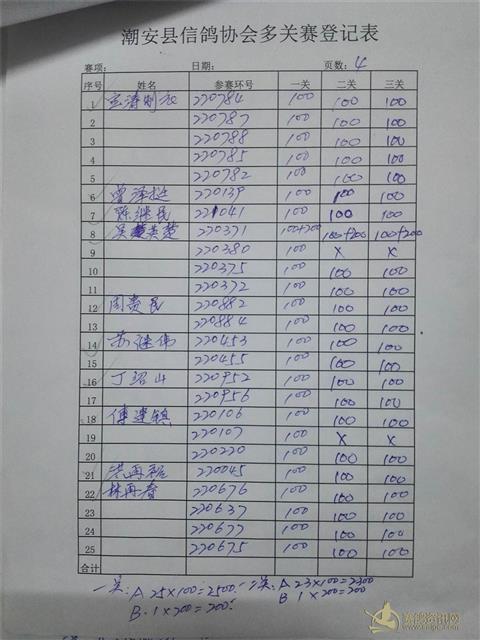 潮安县信鸽协会多关赛登记表
赛项: 日期: 页数: 4
序号 姓名 参赛环号 一关 二关 三关
1 220784 100 100 100
2 220787 100 100 100
3 220788 100 100 100
4 220785 100 100 100
5 220782 100 100 100
6 曾泽挺 220139 100 100 100
7 陈继民 221041 100 100 100
8 英楚 220371 100+200 100+200 100+200
9 220380 100 X X
10 220375 100 100 100
11 220372 100 100 100
12 周贵民 220882 100 100 100
13 220884 100 100 100
14 苏继伟 220453 100 100 100
15 220455 100 100 100
16 丁绍山 220952 100 100 100
17 220956 100 100 100
18 傅建镇 220106 100 100 100
19 220107 100 X X
20 220220 100 100 100
21 洪再 220045 100 100 100
22 林再春 220676 100 100 100
23 220637 100 100 100
24 220677 100 100 100
25 220675 100 100 100
合计
一关: A 25×100=2500. 二关: A 23×100=2300
B. 1×200=200. B. 1×200=200